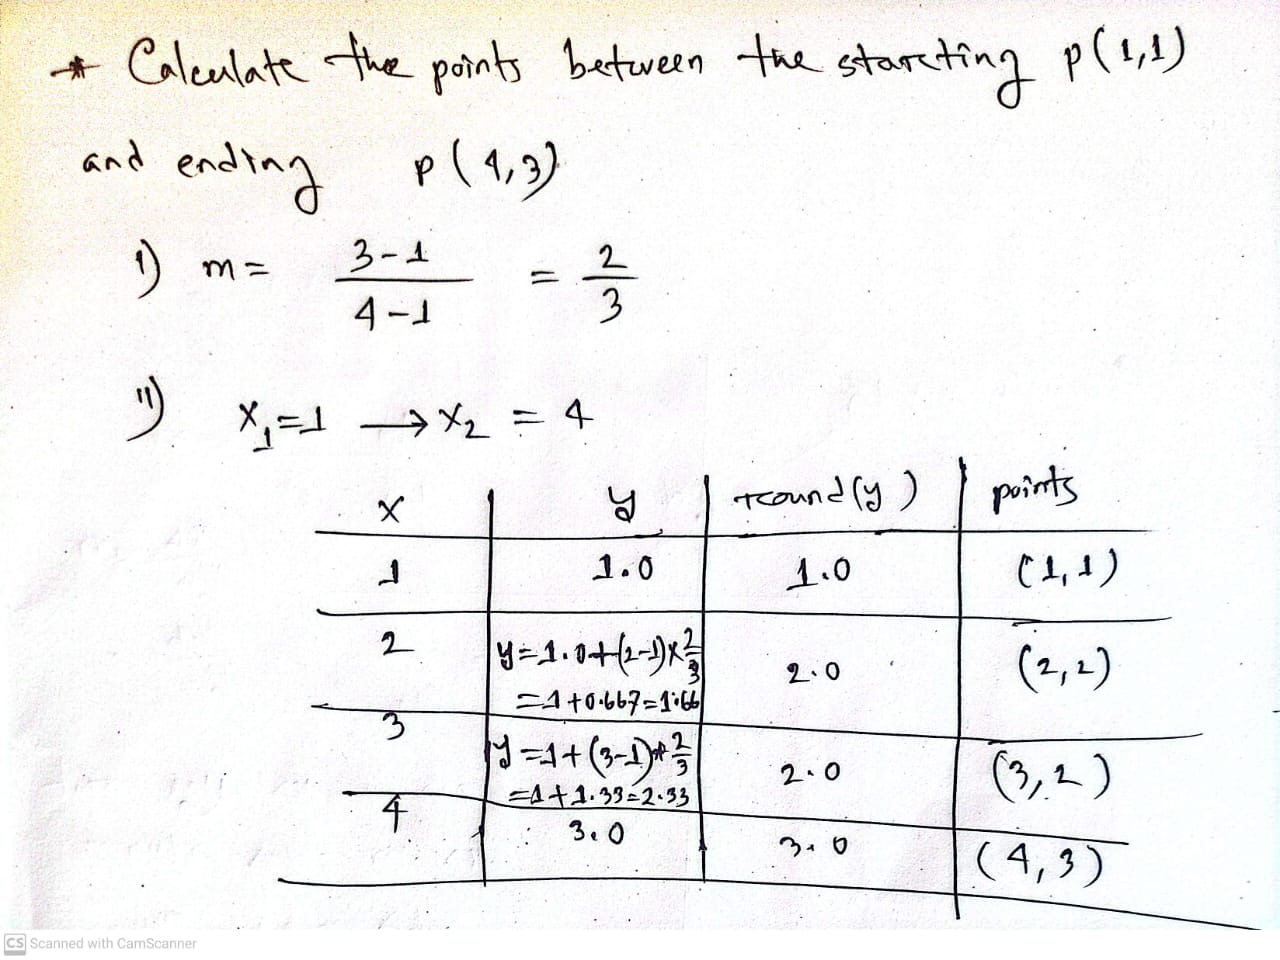 * Calculate the points between the starting p(1,1)
and ending p(4,3)
i) m = 3-1 / 4-1 = 2/3
ii) x₁=1 → x₂ = 4
x | y | round(y) | points
1 | 1.0 | 1.0 | (1,1)
2 | y=1.0+(2-1)×2/3 | 2.0 | (2,2)
=1+0.667=1.66
3 | y=1+(3-1)*2/3 | 2.0 | (3,2)
=1+1.33=2.33
4 | 3.0 | 3.0 | (4,3)
CS Scanned with CamScanner